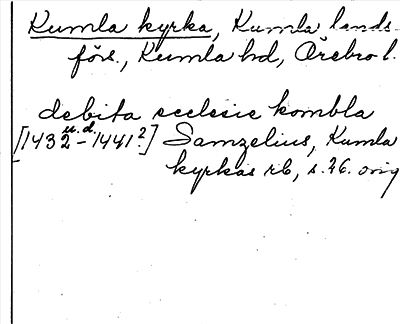 Kumla kyrka, Kumla lands-
förs., Kumla hd, Örebro l.
debita ecclesie kombla
[1432 u.d. – 1441?] Samzelius, Kumla
kyrkas rb, s. 26. orig